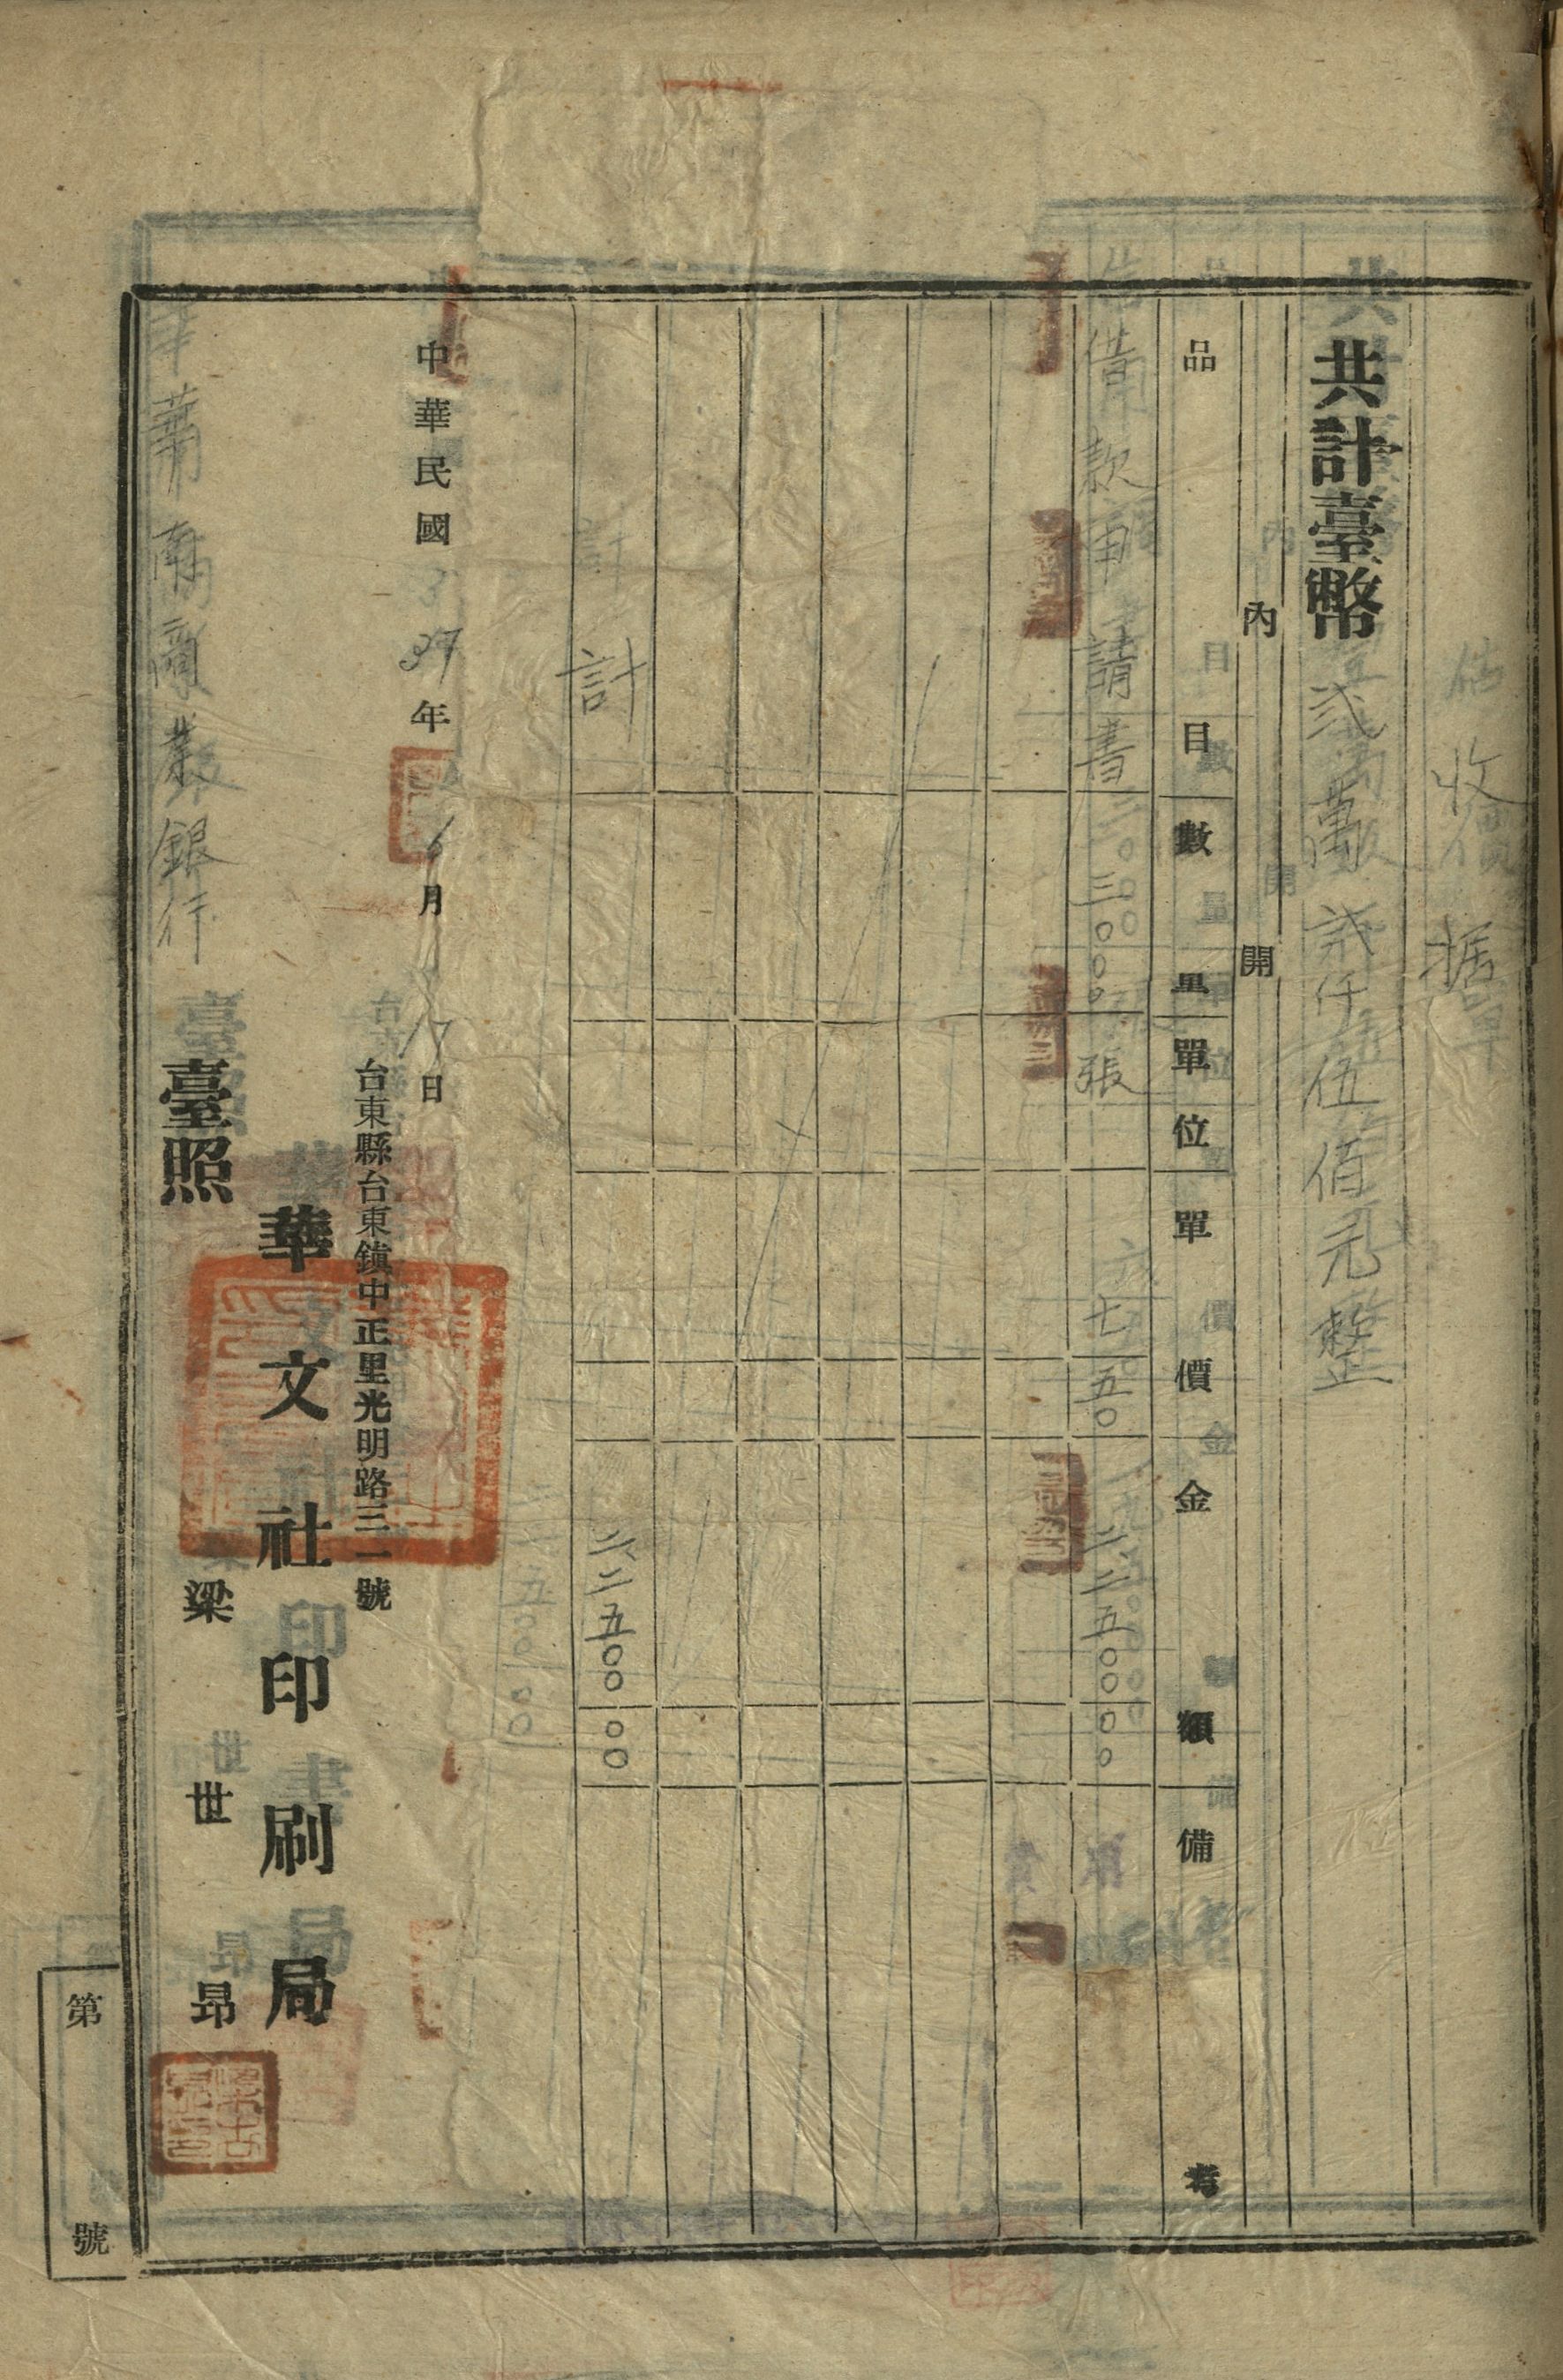 收據
共計臺幣 弍萬弍仟伍佰元整
內 開
品 目 數 量 單 位 單 價 金 額 備 考
借款申請書 三〇〇〇 張 七五〇 二二五〇〇〇〇
計 二、二五〇〇〇〇
中華民國 37 年 6 月 17 日
台東縣台東鎮中正里光明路三一號
華文社印刷局
梁世昂
華南商業銀行 臺照
第 號